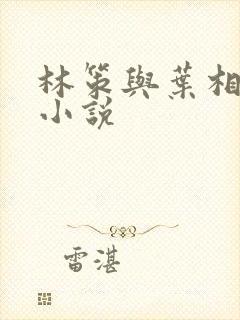 林策與葉相
小説
雷湛